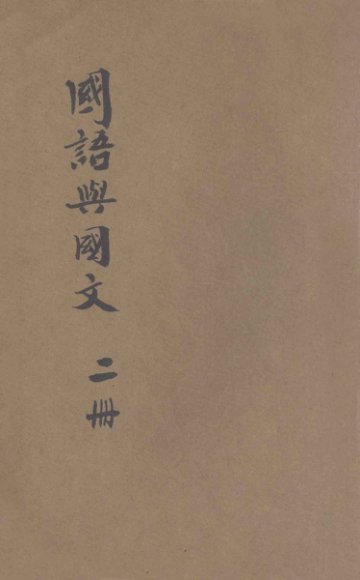 國語與國文 二冊